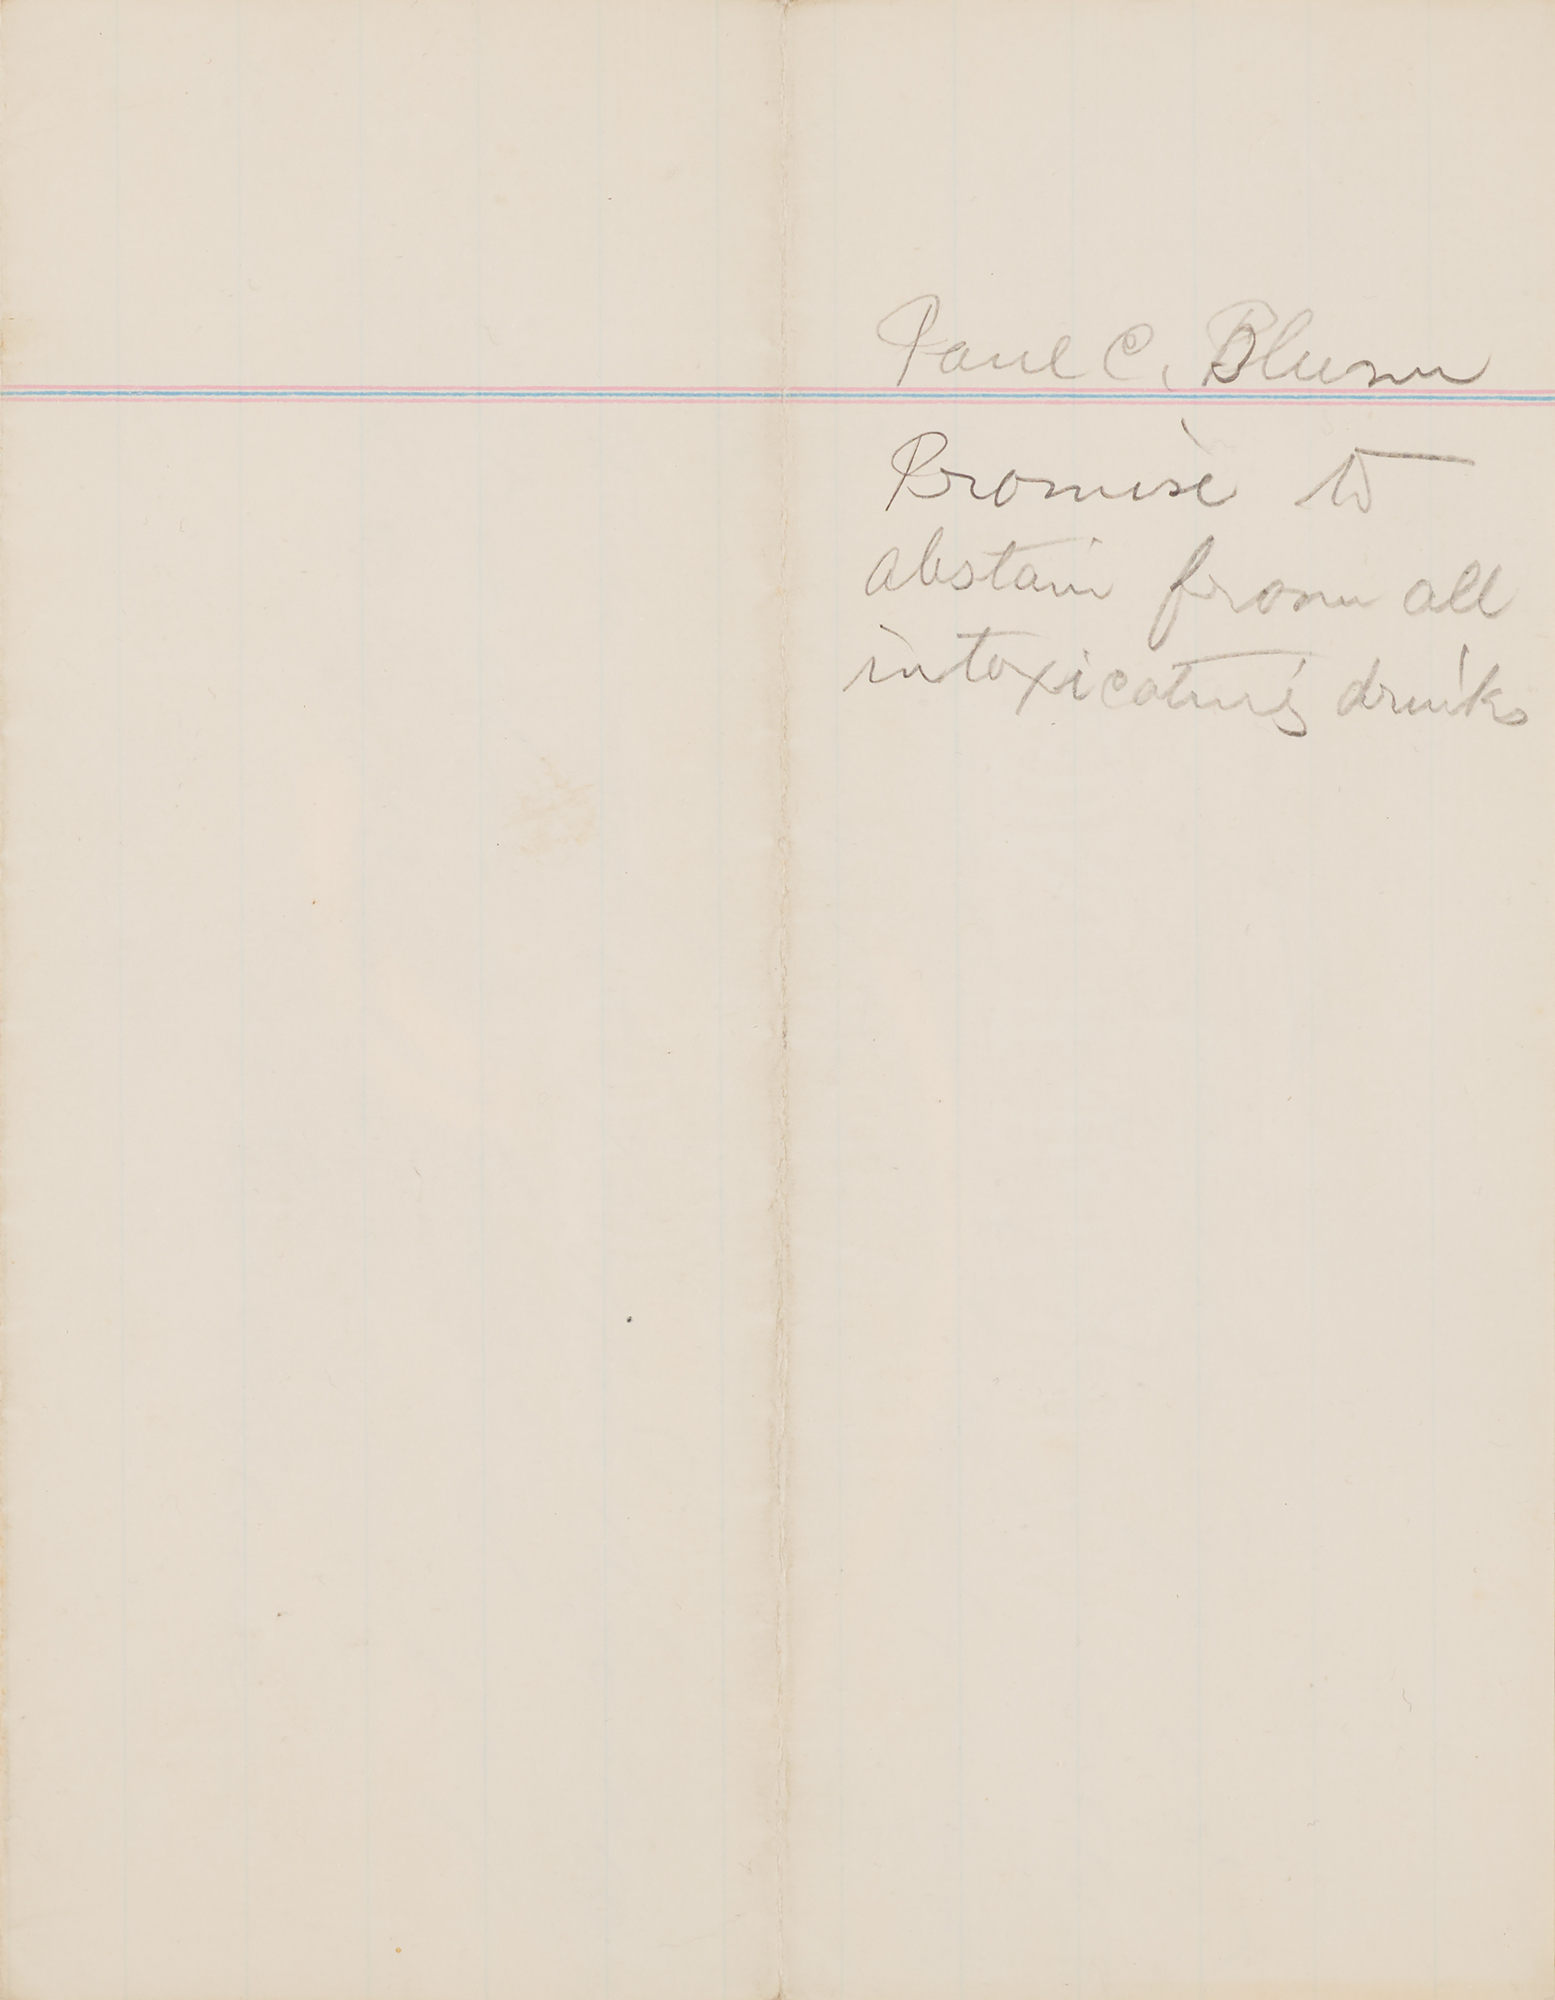 Paul C. Blum
Promise to
abstain from all
intoxicating drinks